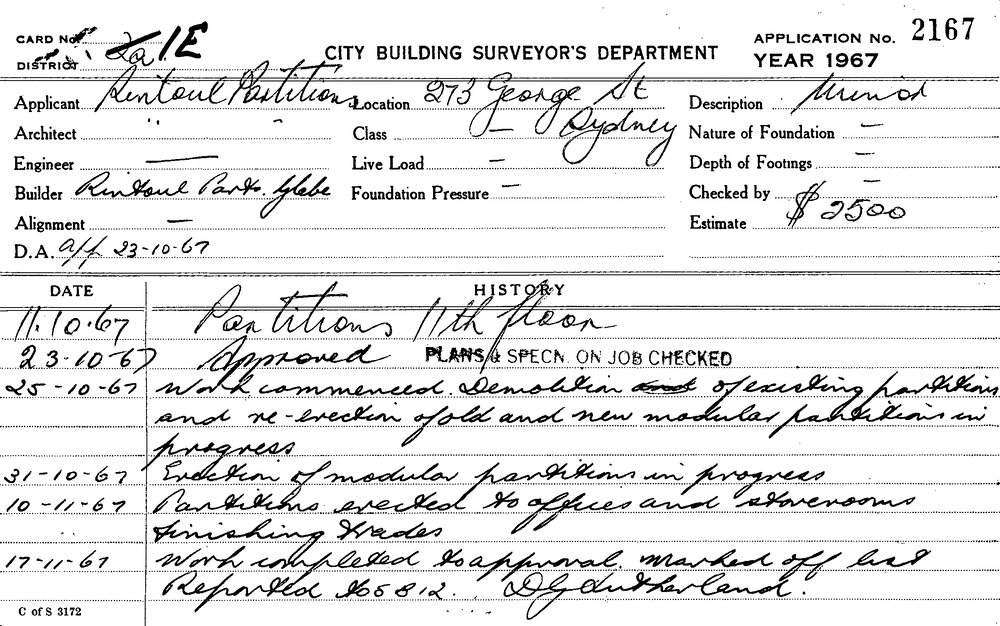 CARD No. 2a 1E
DISTRICT
CITY BUILDING SURVEYOR'S DEPARTMENT
APPLICATION No. 2167
YEAR 1967
Applicant Rintoul Partitions Location 273 George St Description Minor
Architect " " Class — Sydney Nature of Foundation —
Engineer — Live Load — Depth of Footings —
Builder Rintoul Parts. Glebe Foundation Pressure — Checked by —
Alignment — Estimate $2500
D.A. app 23-10-67
DATE HISTORY
11.10.67 Partitions 11th floor
23-10-67 Approved PLANS & SPECN. ON JOB CHECKED
25-10-67 Work commenced. Demolition of existing partitions
and re-erection of old and new modular partitions in
progress
31-10-67 Erection of modular partitions in progress
10-11-67 Partitions erected to offices and storerooms
finishing trades
17-11-67 Work completed to approval. Marked off list
Reported 5812. DG Sutherland.
C of S 3172